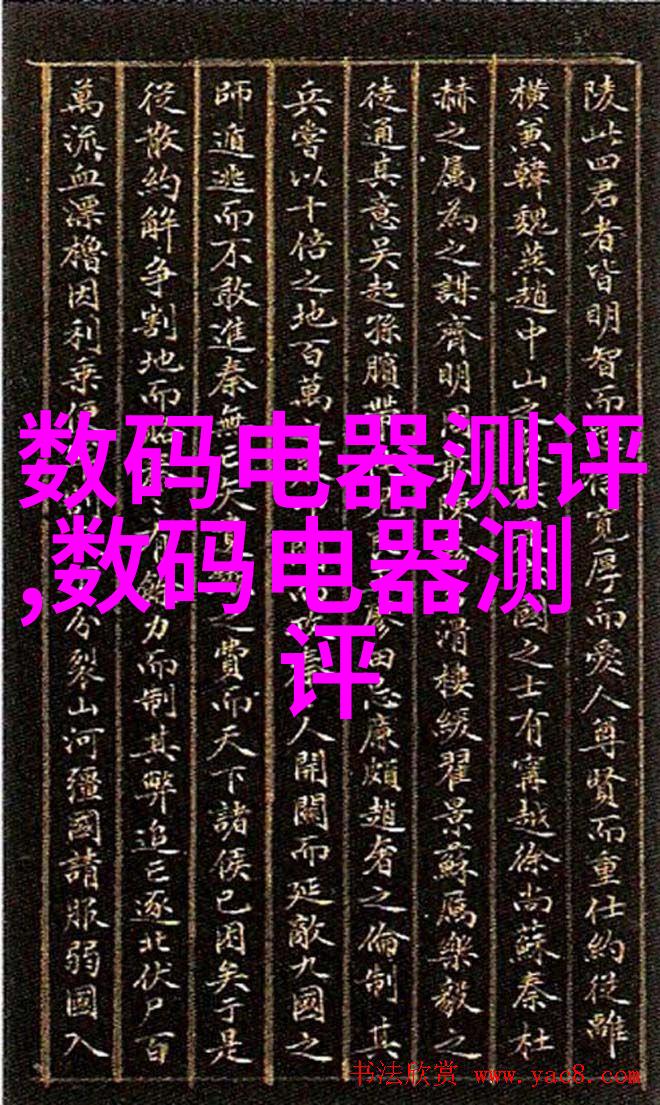 陵此四君者皆明智而 寬厚而愛人尊賢而重仕約從離
橫兼韓魏燕趙中山之 國之士有甯越徐尚蘇秦杜
赫之屬為之謀齊明周 滑樓緩翟景蘇厲樂毅之
徒通其意吳起孫臏帶 廖田忌廉頗趙奢之倫制其
兵嘗以十倍之地百萬 人開關而延敵九國之
師遁逃而不敢進秦無亡矢 之費而天下諸侯已困矣于是
從散約解爭割地而 有 力而制其弊追亡逐北伏尸百
萬流血漂櫓因利乘便 分裂山河彊國請服弱國入
数码电器测评
,数码电器测
评
书法欣赏 www.yac8.com